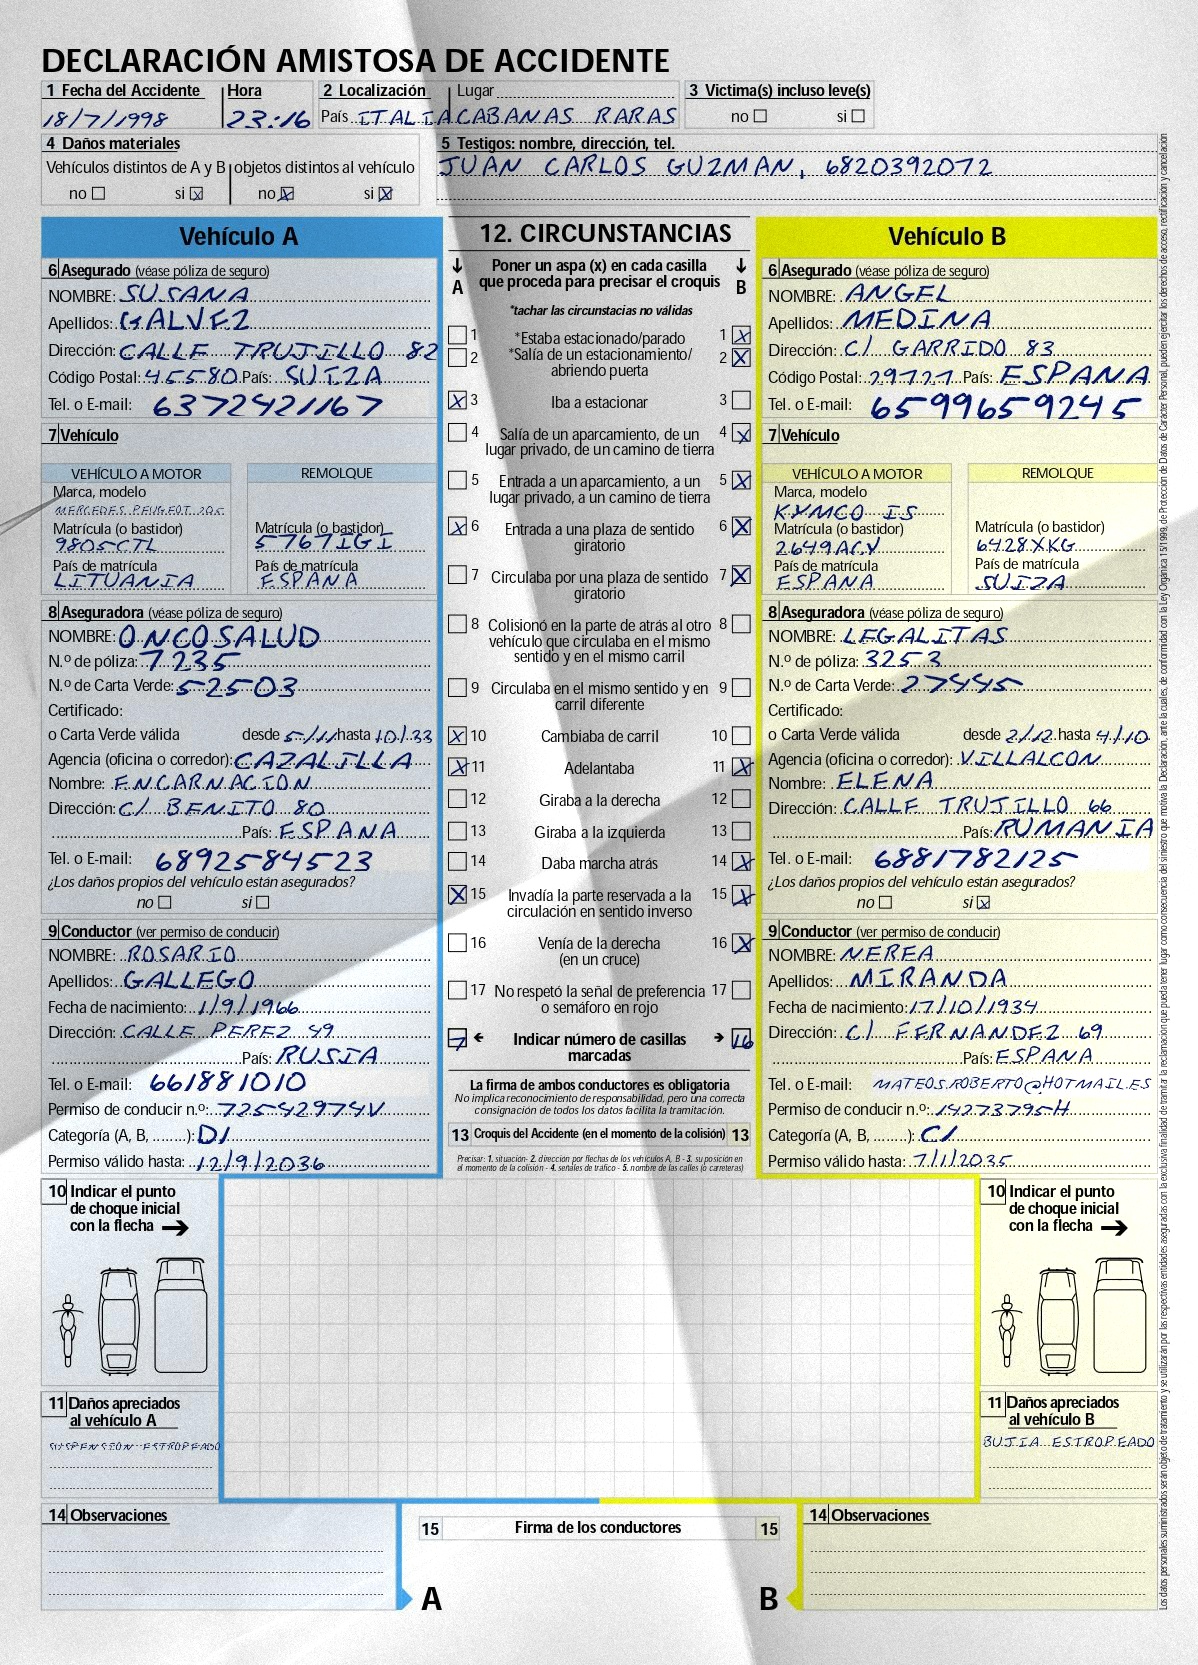 DECLARACIÓN AMISTOSA DE ACCIDENTE
1 Fecha del Accidente Hora 2 Localización Lugar 3 Victima(s) incluso leve(s)
18/7/1998 23:16 País ITALIA CABANAS RARAS no si
4 Daños materiales 5 Testigos: nombre, dirección, tel.
Vehículos distintos de A y B objetos distintos al vehículo JUAN CARLOS GUZMAN, 6820392072
no si X no X si X
Vehículo A
6 Asegurado (véase póliza de seguro)
NOMBRE: SUSANA
Apellidos: GALVEZ
Dirección: CALLE TRUJILLO 82
Código Postal: 45580 País: SUIZA
Tel. o E-mail: 6372421167
7 Vehículo
VEHÍCULO A MOTOR REMOLQUE
Marca, modelo
MERCEDES PEUGEOT 206
Matrícula (o bastidor) Matrícula (o bastidor)
9805CTL 5767IGI
País de matrícula País de matrícula
LITUANIA ESPANA
8 Aseguradora (véase póliza de seguro)
NOMBRE: ONCOSALUD
N.º de póliza: 7235
N.º de Carta Verde: 52503
Certificado:
o Carta Verde válida desde 5/11 hasta 10/33
Agencia (oficina o corredor): CAZALILLA
Nombre: ENCARNACION
Dirección: C/ BENITO 80
País: ESPANA
Tel. o E-mail: 6892584523
¿Los daños propios del vehículo están asegurados?
no si
9 Conductor (ver permiso de conducir)
NOMBRE: ROSARIO
Apellidos: GALLEGO
Fecha de nacimiento: 1/9/1966
Dirección: CALLE PEREZ 49
País: RUSIA
Tel. o E-mail: 661881010
Permiso de conducir n.º: 72542974V
Categoría (A, B, ........): D1
Permiso válido hasta: 12/9/2036
10 Indicar el punto
de choque inicial
con la flecha →
11 Daños apreciados
al vehículo A
SUSPENSION ESTROPEADO
14 Observaciones
12. CIRCUNSTANCIAS
↓ Poner un aspa (x) en cada casilla ↓
A que proceda para precisar el croquis B
*tachar las circunstacias no válidas
1 *Estaba estacionado/parado 1 X
2 *Salía de un estacionamiento/ 2 X
abriendo puerta
X 3 Iba a estacionar 3
4 Salía de un aparcamiento, de un 4 X
lugar privado, de un camino de tierra
5 Entrada a un aparcamiento, a un 5 X
lugar privado, a un camino de tierra
X 6 Entrada a una plaza de sentido 6 X
giratorio
7 Circulaba por una plaza de sentido 7 X
giratorio
8 Colisionó en la parte de atrás al otro 8
vehículo que circulaba en el mismo
sentido y en el mismo carril
9 Circulaba en el mismo sentido y en 9
carril diferente
X 10 Cambiaba de carril 10
X 11 Adelantaba 11 X
12 Giraba a la derecha 12
13 Giraba a la izquierda 13
14 Daba marcha atrás 14 X
X 15 Invadía la parte reservada a la 15 X
circulación en sentido inverso
16 Venía de la derecha 16 X
(en un cruce)
17 No respetó la señal de preferencia 17
o semáforo en rojo
7 ← Indicar número de casillas → 16
marcadas
La firma de ambos conductores es obligatoria
No implica reconocimiento de responsabilidad, pero una correcta
consignación de todos los datos facilita la tramitación.
13 Croquis del Accidente (en el momento de la colisión) 13
Precisar: 1. situación- 2. dirección por flechas de los vehículos A, B - 3. su posición en
el momento de la colisión - 4. señales de tráfico - 5. nombre de las calles (o carreteras)
15 Firma de los conductores 15
A B
Vehículo B
6 Asegurado (véase póliza de seguro)
NOMBRE: ANGEL
Apellidos: MEDINA
Dirección: C/ GARRIDO 83
Código Postal: 29727 País: ESPANA
Tel. o E-mail: 6599659245
7 Vehículo
VEHÍCULO A MOTOR REMOLQUE
Marca, modelo
KYMCO IS
Matrícula (o bastidor) Matrícula (o bastidor)
2649ACV 6428XKG
País de matrícula País de matrícula
ESPANA SUIZA
8 Aseguradora (véase póliza de seguro)
NOMBRE: LEGALITAS
N.º de póliza: 3253
N.º de Carta Verde: 27445
Certificado:
o Carta Verde válida desde 2/12 hasta 4/10
Agencia (oficina o corredor): VILLALCON
Nombre: ELENA
Dirección: CALLE TRUJILLO 66
País: RUMANIA
Tel. o E-mail: 6881782125
¿Los daños propios del vehículo están asegurados?
no si X
9 Conductor (ver permiso de conducir)
NOMBRE: NEREA
Apellidos: MIRANDA
Fecha de nacimiento: 17/10/1934
Dirección: C/ FERNANDEZ 69
País: ESPANA
Tel. o E-mail: MATEOS.ROBERTO@HOTMAIL.ES
Permiso de conducir n.º: 14273795H
Categoría (A, B, ........): C1
Permiso válido hasta: 7/1/2035
10 Indicar el punto
de choque inicial
con la flecha →
11 Daños apreciados
al vehículo B
BUJIA ESTROPEADO
14 Observaciones
Los datos personales suministrados serán objeto de tratamiento y se utilizarán por las respectivas entidades aseguradas con la exclusiva finalidad de tramitar la reclamación que pueda tener lugar como consecuencia del siniestro que motiva la Declaración, ante la cuales, de conformidad con la Ley Orgánica 15/1999, de Protección de Datos de Carácter Personal, pueden ejercitar los derechos de acceso, rectificación y cancelación